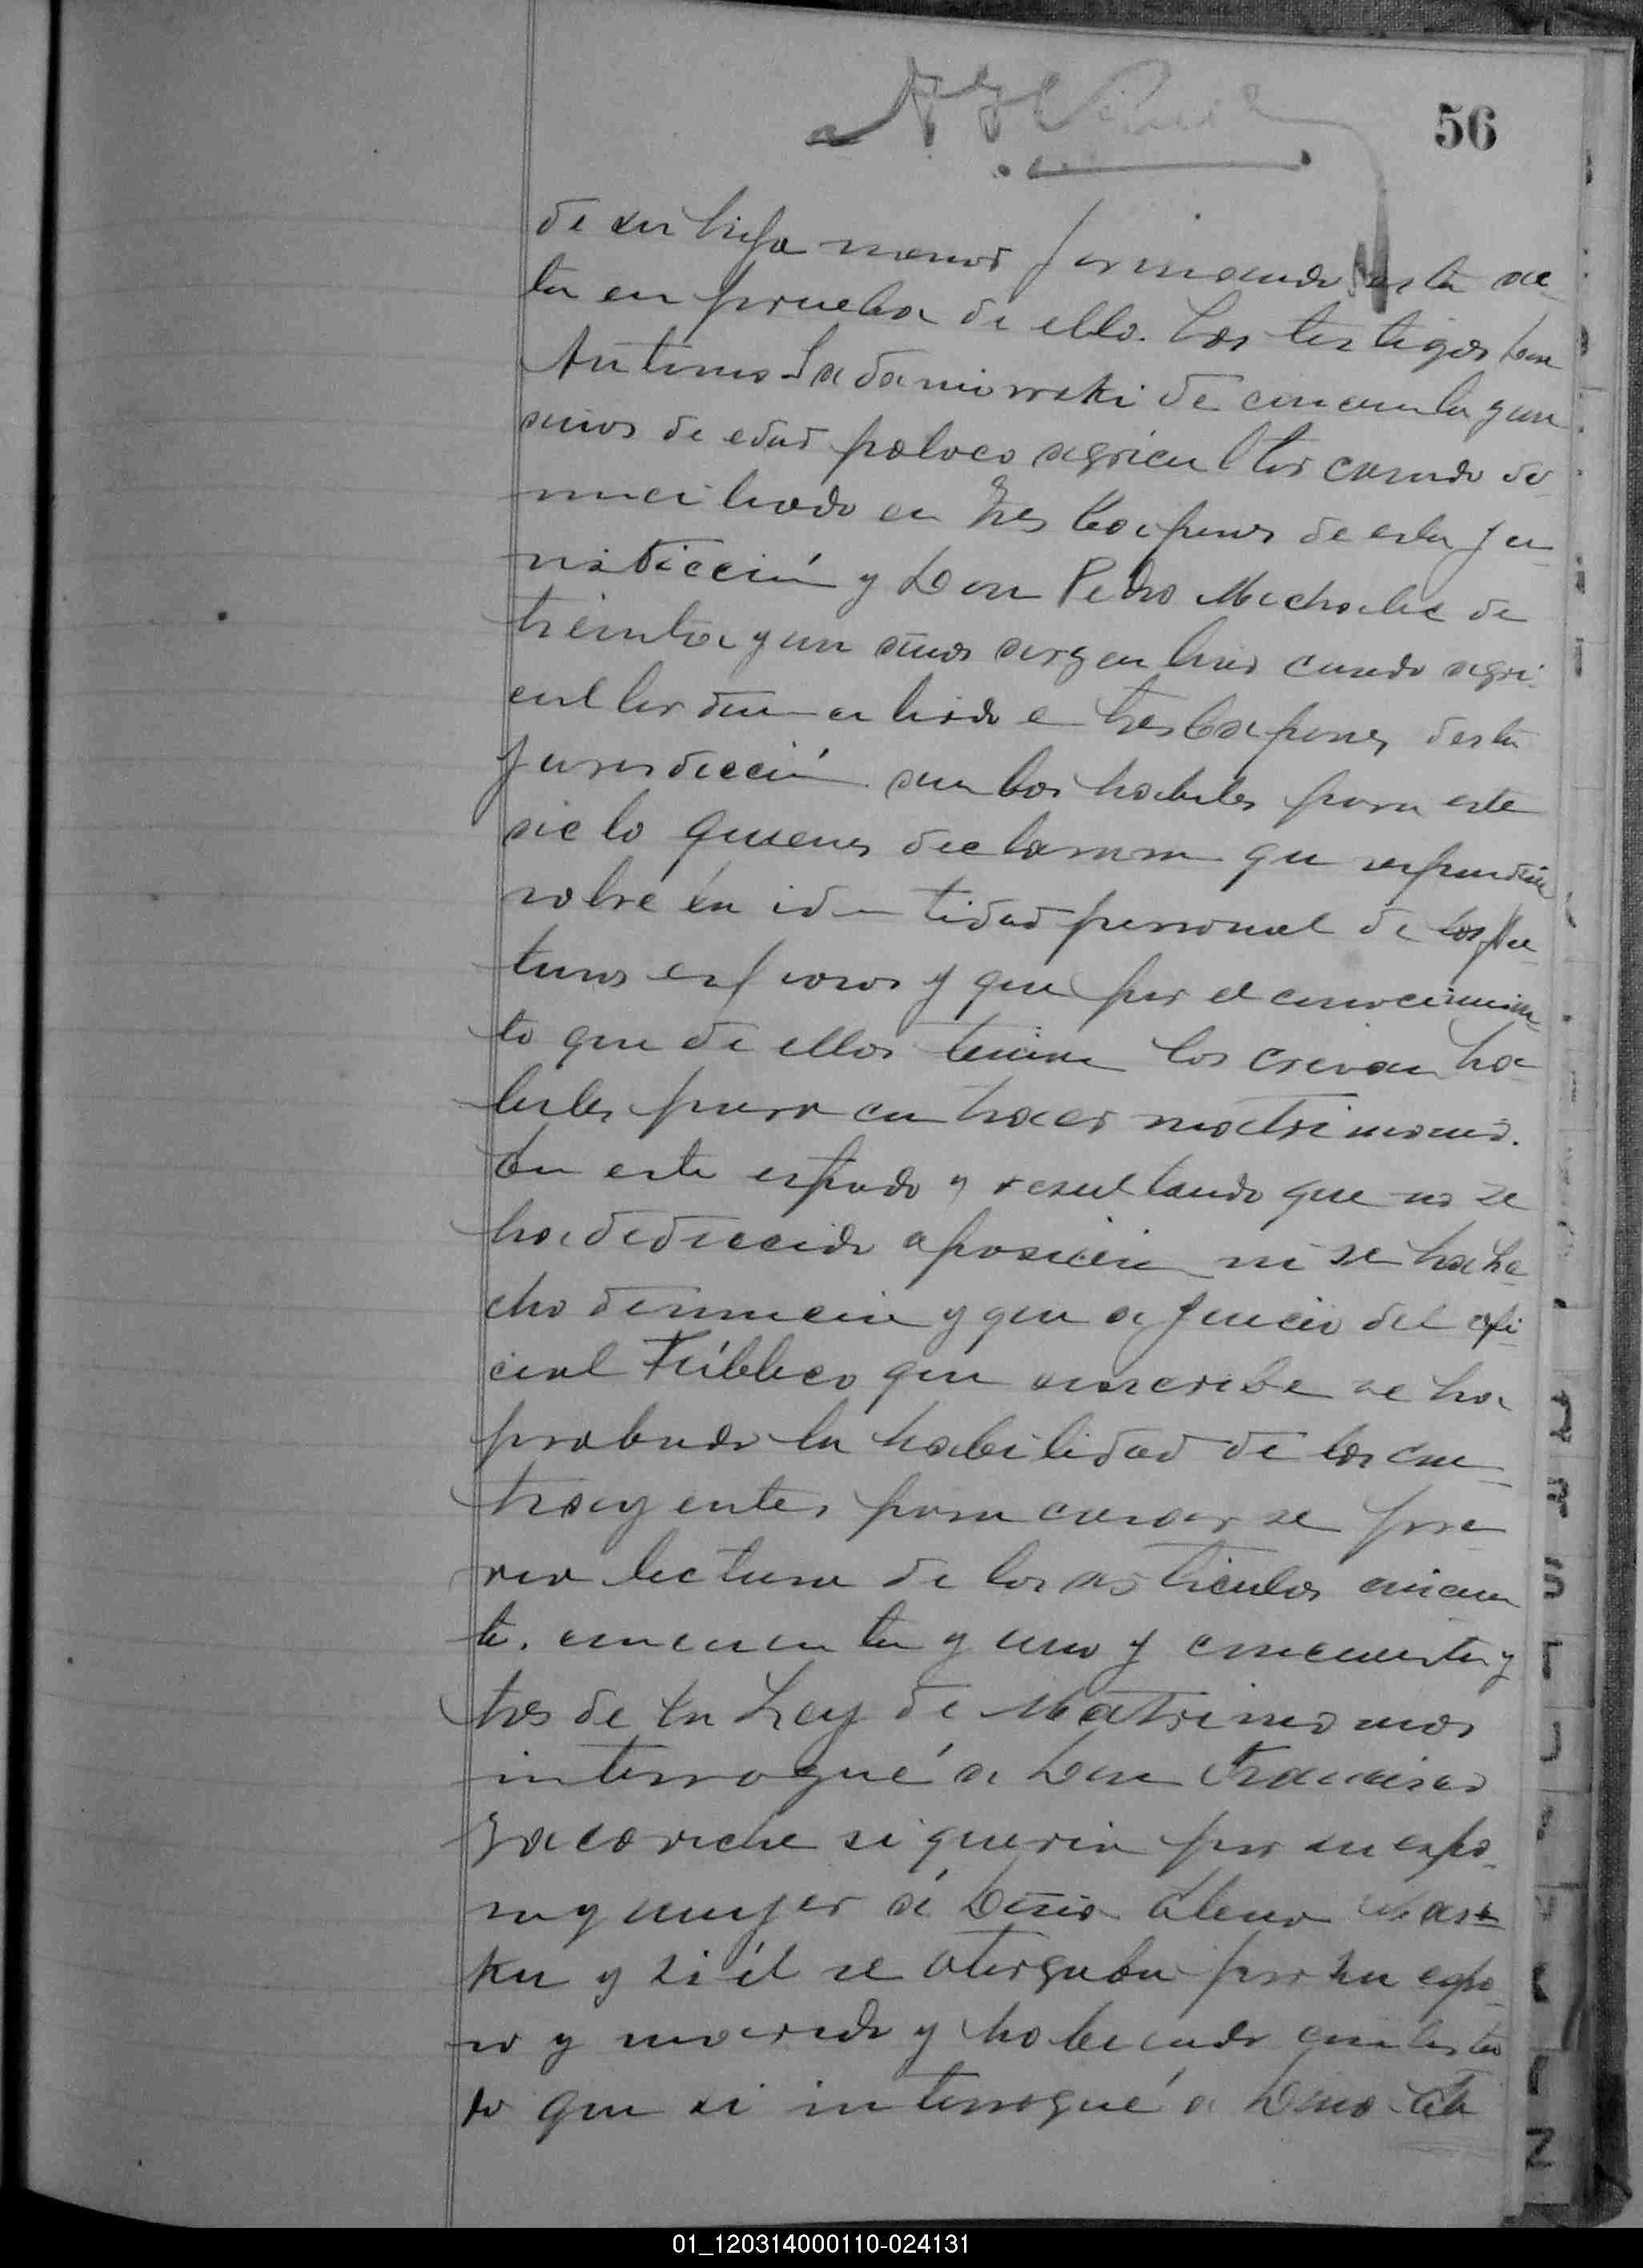 56
de su hija menor firmando esta ac-
ta en prueba de ello. Los testigos Don
Antonio Sadaniowski de cincuenta y un
años de edad polaco agricultor casado do-
miciliado en Tres Capones de esta ju-
risdicción y Don Pedro Michalec de
treinta y un años argentino casado agri-
cultor domiciliado en Tres Capones desta
jurisdicción ambos habiles para este
acto quienes declararon que respondian
sobre la identidad personal de los fu-
turos esposos y que por el conocimien-
to que de ellos tenian los creian ha-
biles para contraer matrimonio.
En este estado y resultando que no se
ha deduccido oposicion ni se ha he-
cho denuncia y que a juicio del ofi-
cial Público que suscribe se ha
probado la habilidad de los con-
trayentes para casarse pre-
via lectura de los articulos cincuen
ta, cincuenta y uno y cincuenta y
tres de la Ley de Matrimonios
interrogué a Don Francisco
si queria por su espo-
sa y mujer á Doña Elena
y si él se otorgaba por su espo-
so y marido y habiendo contesta
do que si interrogué a Doña Ele
01_120314000110-024131